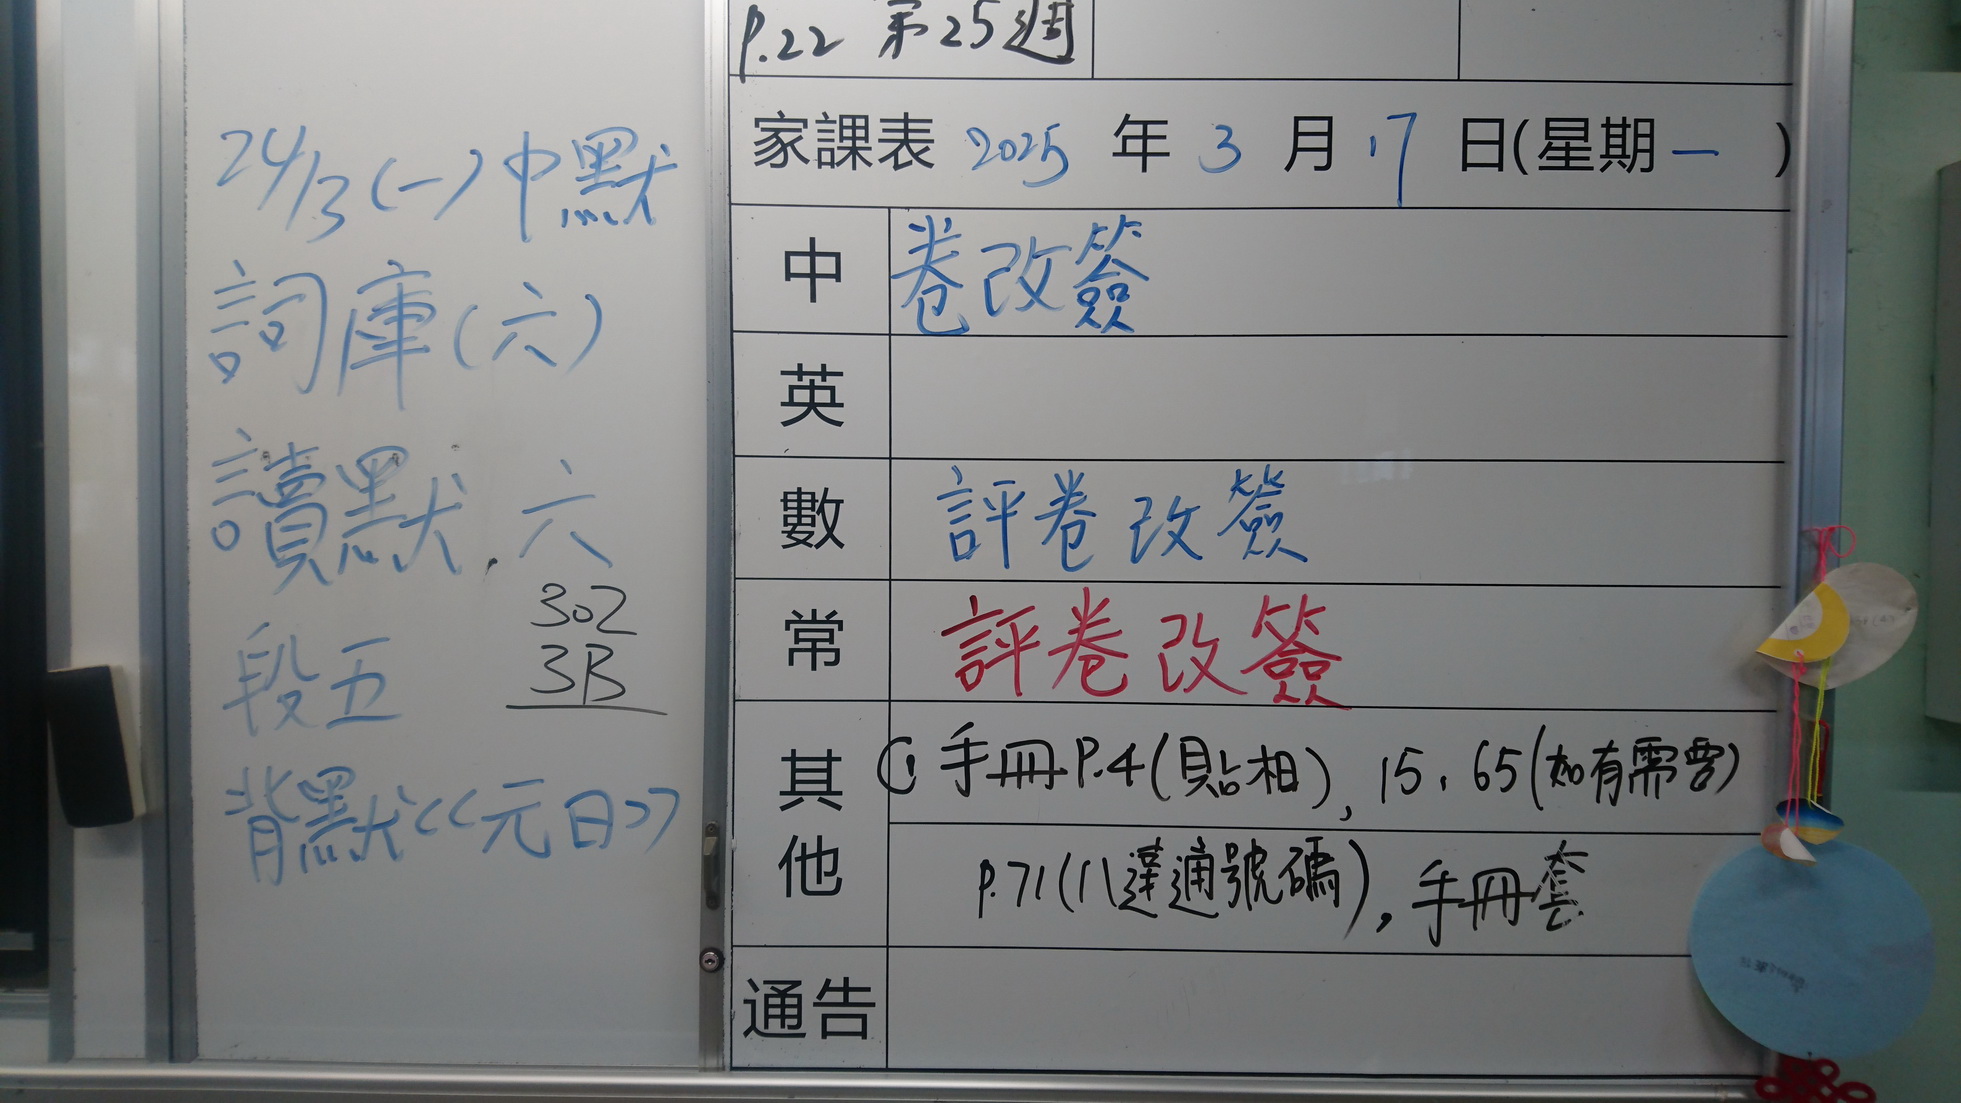 P.22 第25週
24/3(一)中默
詞庫(六)
讀默,六
段五
背默《元日》
302
3B
家課表 2025 年 3 月 17 日(星期一)
中 卷改簽
英
數 評卷改簽
常 評卷改簽
其他 ① 手冊P.4(貼相), 15, 65(如有需要)
P.71(八達通號碼), 手冊套
通告